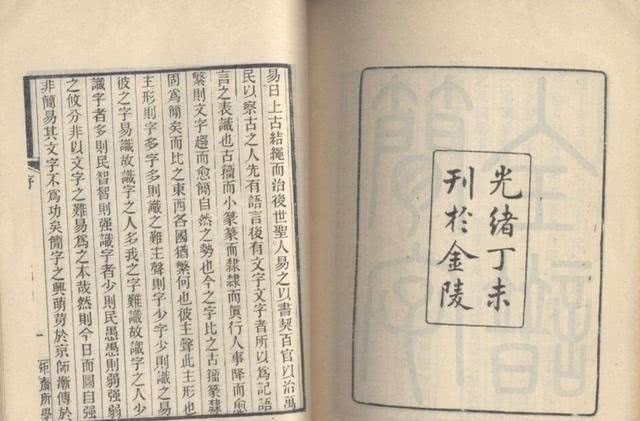 光緒丁未
刊於金陵
易曰上古結繩而治後世聖人易之以書契百官以治萬
民以察古之人先有語言後有文字文字者所以爲記語
言之表識也古籀而小篆篆而隸隸而眞行人事降而
繁則文字趨而愈簡自然之勢也今之字比之古籀篆隸
固爲簡矣而比之東西各國猶繁何也彼主聲此主形
主形則字多字多則識之難主聲則字少字少則識之易
彼之字易識故識字之人多我之字難識故識字之人少
識字者多則民智智則强識字者少則民愚愚則弱强弱
之攸分非以文字之難易爲之本哉然則今日而圖自强
非簡易其文字不爲功矣簡字之興萌芽於京師漸傳於
序
一
矩齋所學